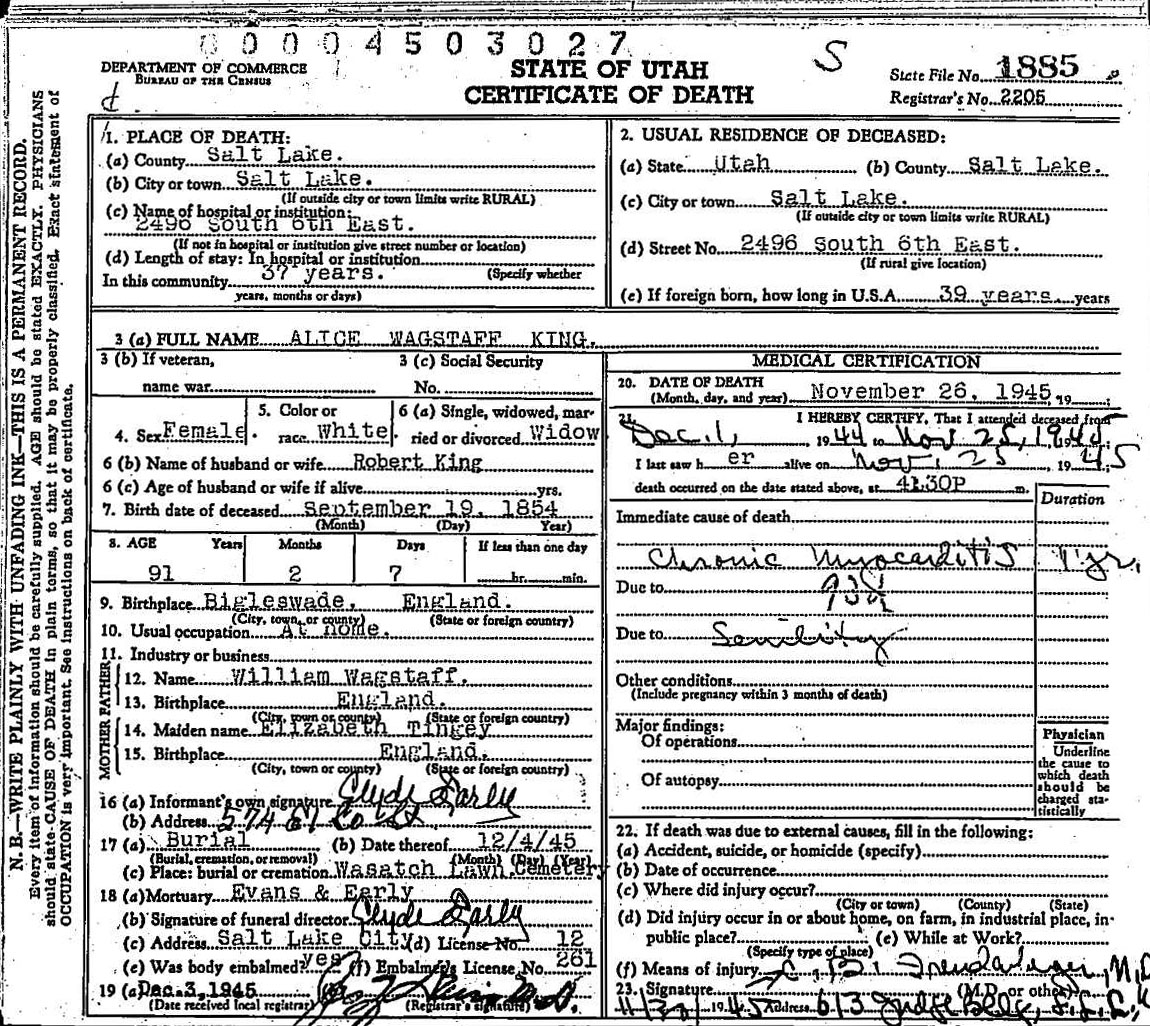 0 0 0 0 4 5 0 3 0 2 7
DEPARTMENT OF COMMERCE
BUREAU OF THE CENSUS
STATE OF UTAH
CERTIFICATE OF DEATH
S
State File No. 1885
Registrar's No. 2205
d.
N. B.—WRITE PLAINLY WITH UNFADING INK—THIS IS A PERMANENT RECORD.
Every item of information should be carefully supplied. AGE should be stated EXACTLY. PHYSICIANS
should state CAUSE OF DEATH in plain terms, so that it may be properly classified. Exact statement of
OCCUPATION is very important. See instructions on back of certificate.
1. PLACE OF DEATH:
(a) County Salt Lake.
(b) City or town Salt Lake.
(If outside city or town limits write RURAL)
(c) Name of hospital or institution:
2496 South 6th East.
(If not in hospital or institution give street number or location)
(d) Length of stay: In hospital or institution
In this community 37 years. (Specify whether
years, months or days)
2. USUAL RESIDENCE OF DECEASED:
(a) State Utah (b) County Salt Lake.
(c) City or town Salt Lake.
(If outside city or town limits write RURAL)
(d) Street No. 2496 South 6th East.
(If rural give location)
(e) If foreign born, how long in U.S.A. 39 years. years
3 (a) FULL NAME ALICE WAGSTAFF KING.
3 (b) If veteran, 3 (c) Social Security
name war No.
4. Sex Female. 5. Color or race White 6 (a) Single, widowed, married or divorced Widow
6 (b) Name of husband or wife Robert King
6 (c) Age of husband or wife if alive yrs.
7. Birth date of deceased September 19, 1854
(Month) (Day) Year)
8. AGE Years Months Days If less than one day
91 2 7 hr. min.
9. Birthplace Bigleswade, England.
(City, town, or county) (State or foreign country)
10. Usual occupation At home.
11. Industry or business
FATHER
12. Name William Wagstaff.
13. Birthplace England.
(City, town or county) (State or foreign country)
MOTHER
14. Maiden name Elizabeth Tingey
15. Birthplace England.
(City, town or county) (State or foreign country)
16 (a) Informant's own signature Clyde Early
(b) Address 574 E
17 (a) Burial (b) Date thereof 12/4/45
(Burial, cremation, or removal) (Month) (Day) (Year)
(c) Place: burial or cremation Wasatch Lawn Cemetery
18 (a) Mortuary Evans & Early
(b) Signature of funeral director Clyde Early
(c) Address Salt Lake City (d) License No. 12
(e) Was body embalmed? yes (f) Embalmer's License No. 261
19 (a) Dec. 3, 1945
(Date received local registrar) (Registrar's signature)
MEDICAL CERTIFICATION
20. DATE OF DEATH
(Month, day, and year) November 26, 1945 19
21. I HEREBY CERTIFY, That I attended deceased from
Dec. 1, 1944 to Nov 25, 1945
I last saw her alive on Nov. 25, 1945
death occurred on the date stated above, at 4:30P m.
Duration
Immediate cause of death
Chronic Myocarditis 1 yr.
Due to
Due to Senility
Other conditions
(Include pregnancy within 3 months of death)
Major findings:
Of operations
Of autopsy
Physician
Underline
the cause to
which death
should be
charged sta-
tistically
22. If death was due to external causes, fill in the following:
(a) Accident, suicide, or homicide (specify)
(b) Date of occurrence
(c) Where did injury occur?
(City or town) (County) (State)
(d) Did injury occur in or about home, on farm, in industrial place, in-
public place? (e) While at Work?
(Specify type of place)
(f) Means of injury
23. Signature M.D.
(M.D. or other)
1945 Address 613 Judge Bldg, S.L.C.